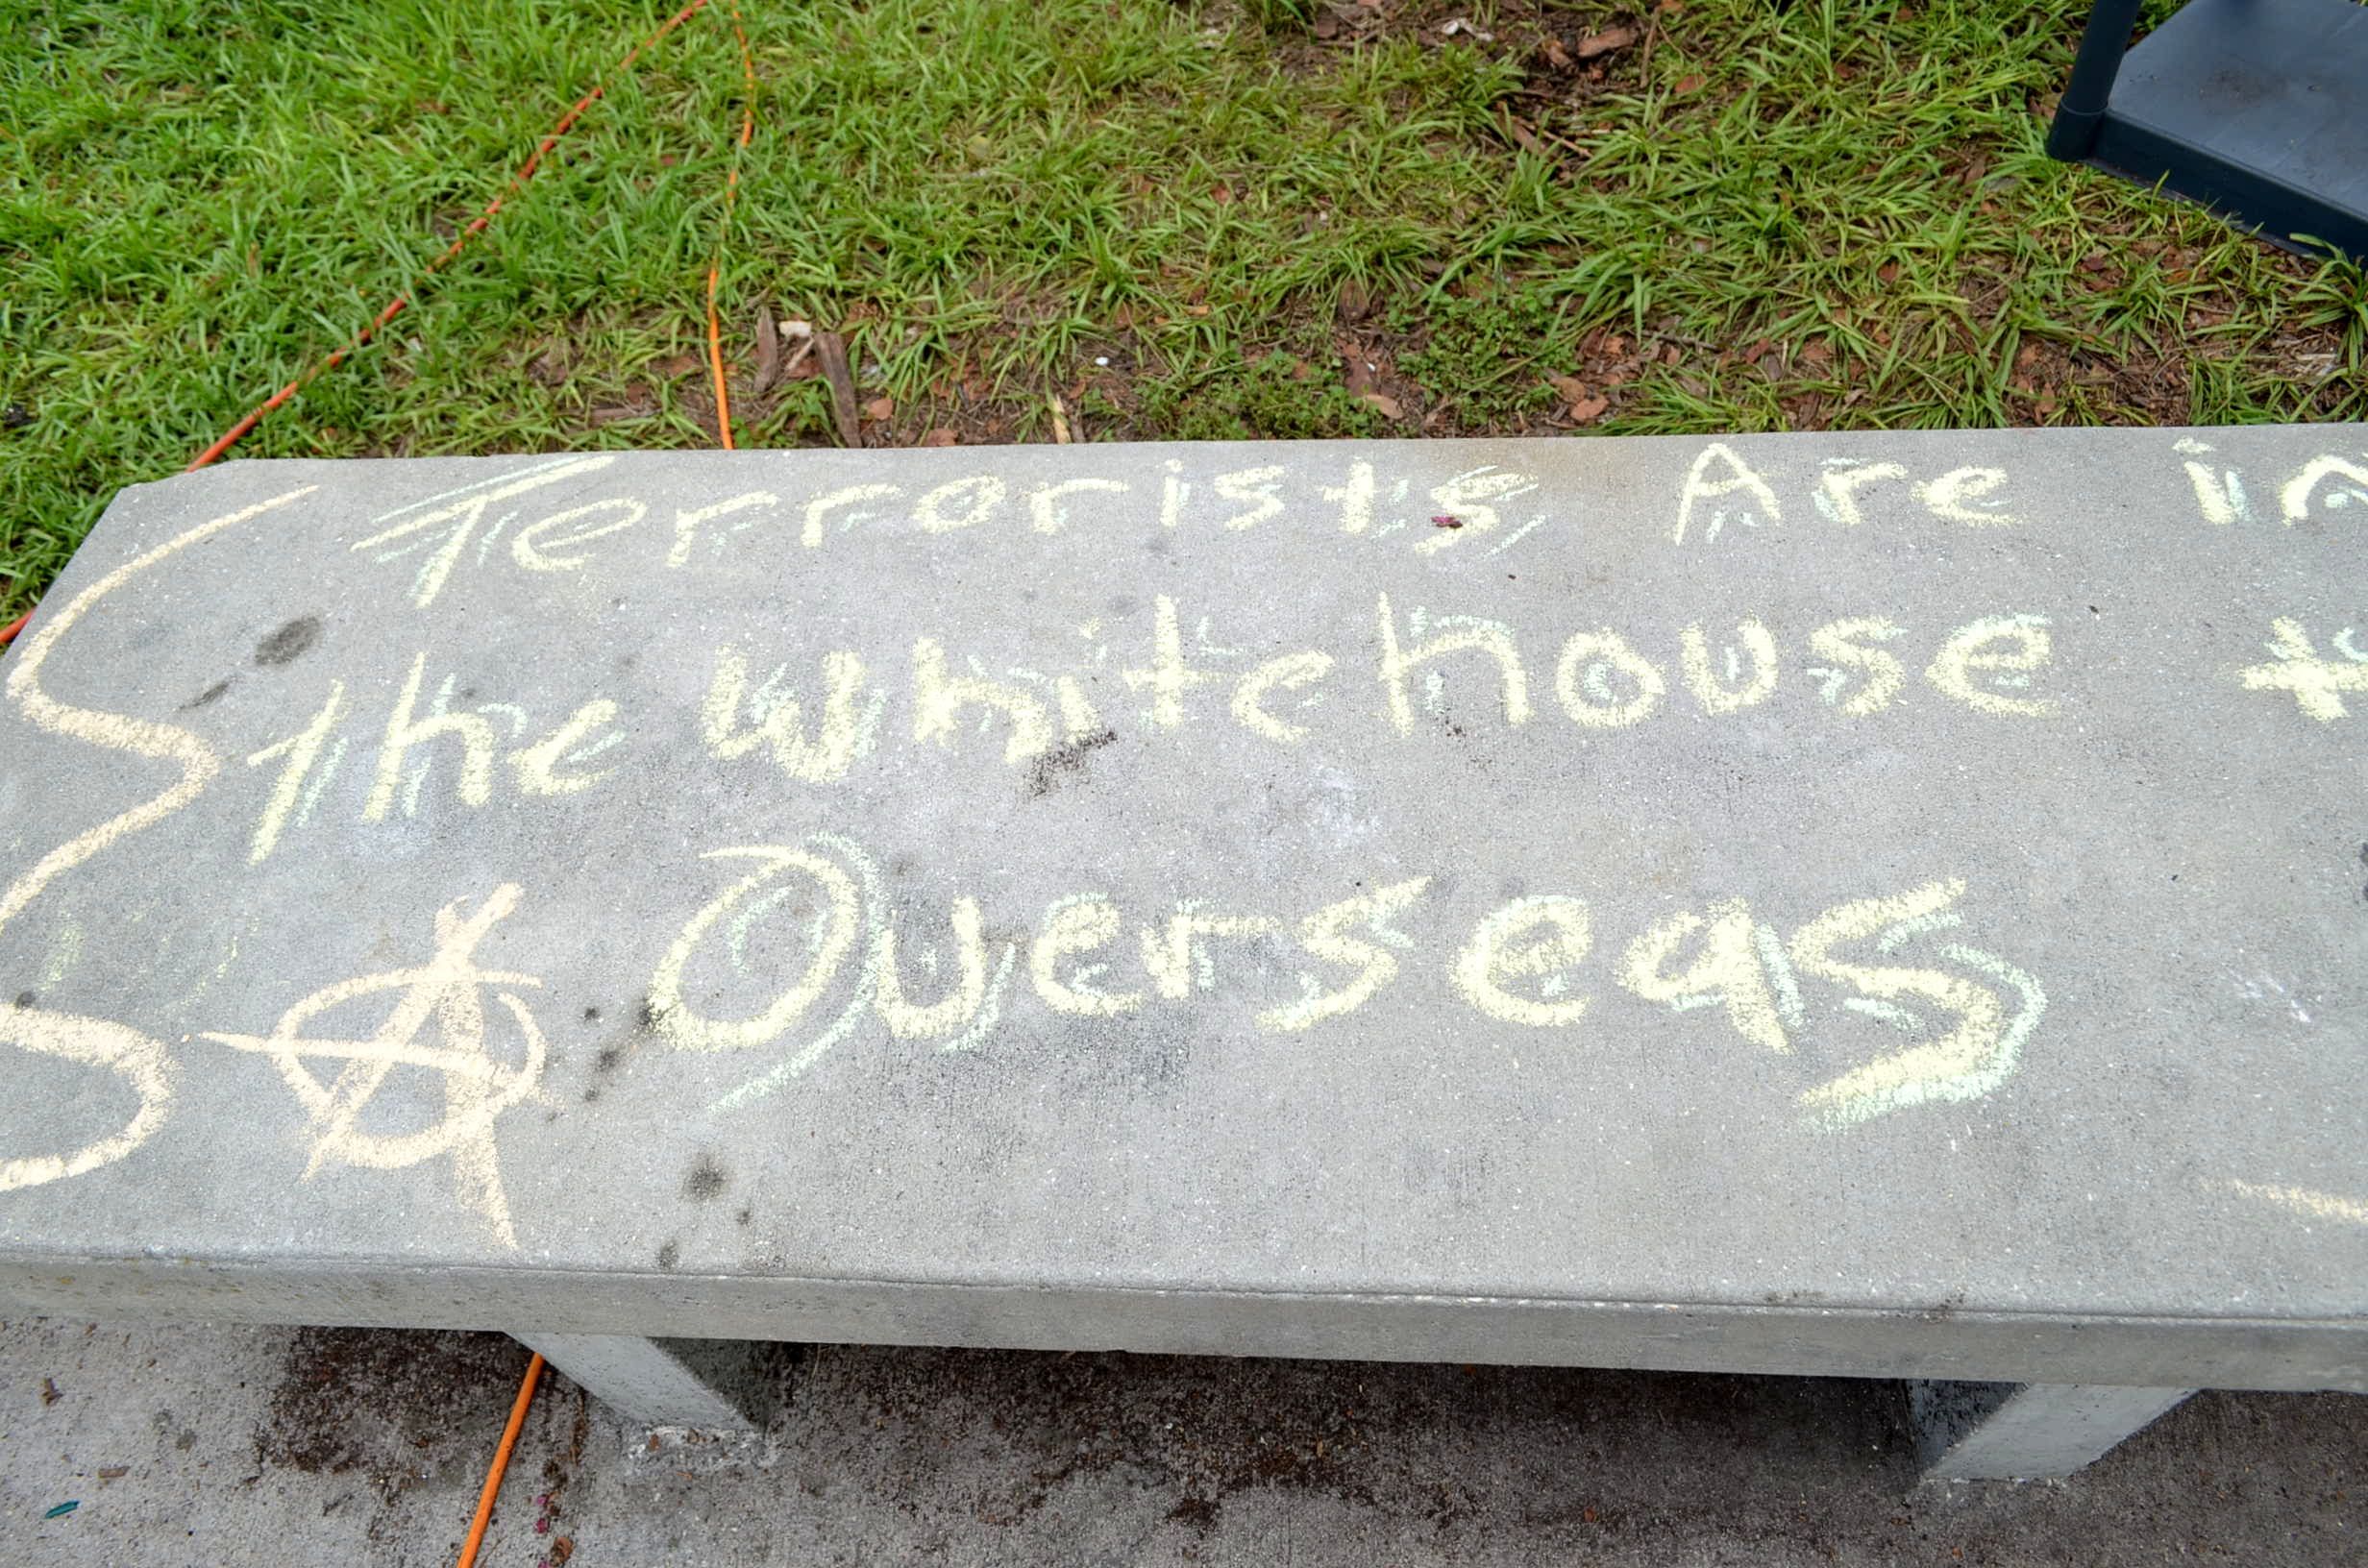 Terrorists Are in
the whitehouse
Overseas